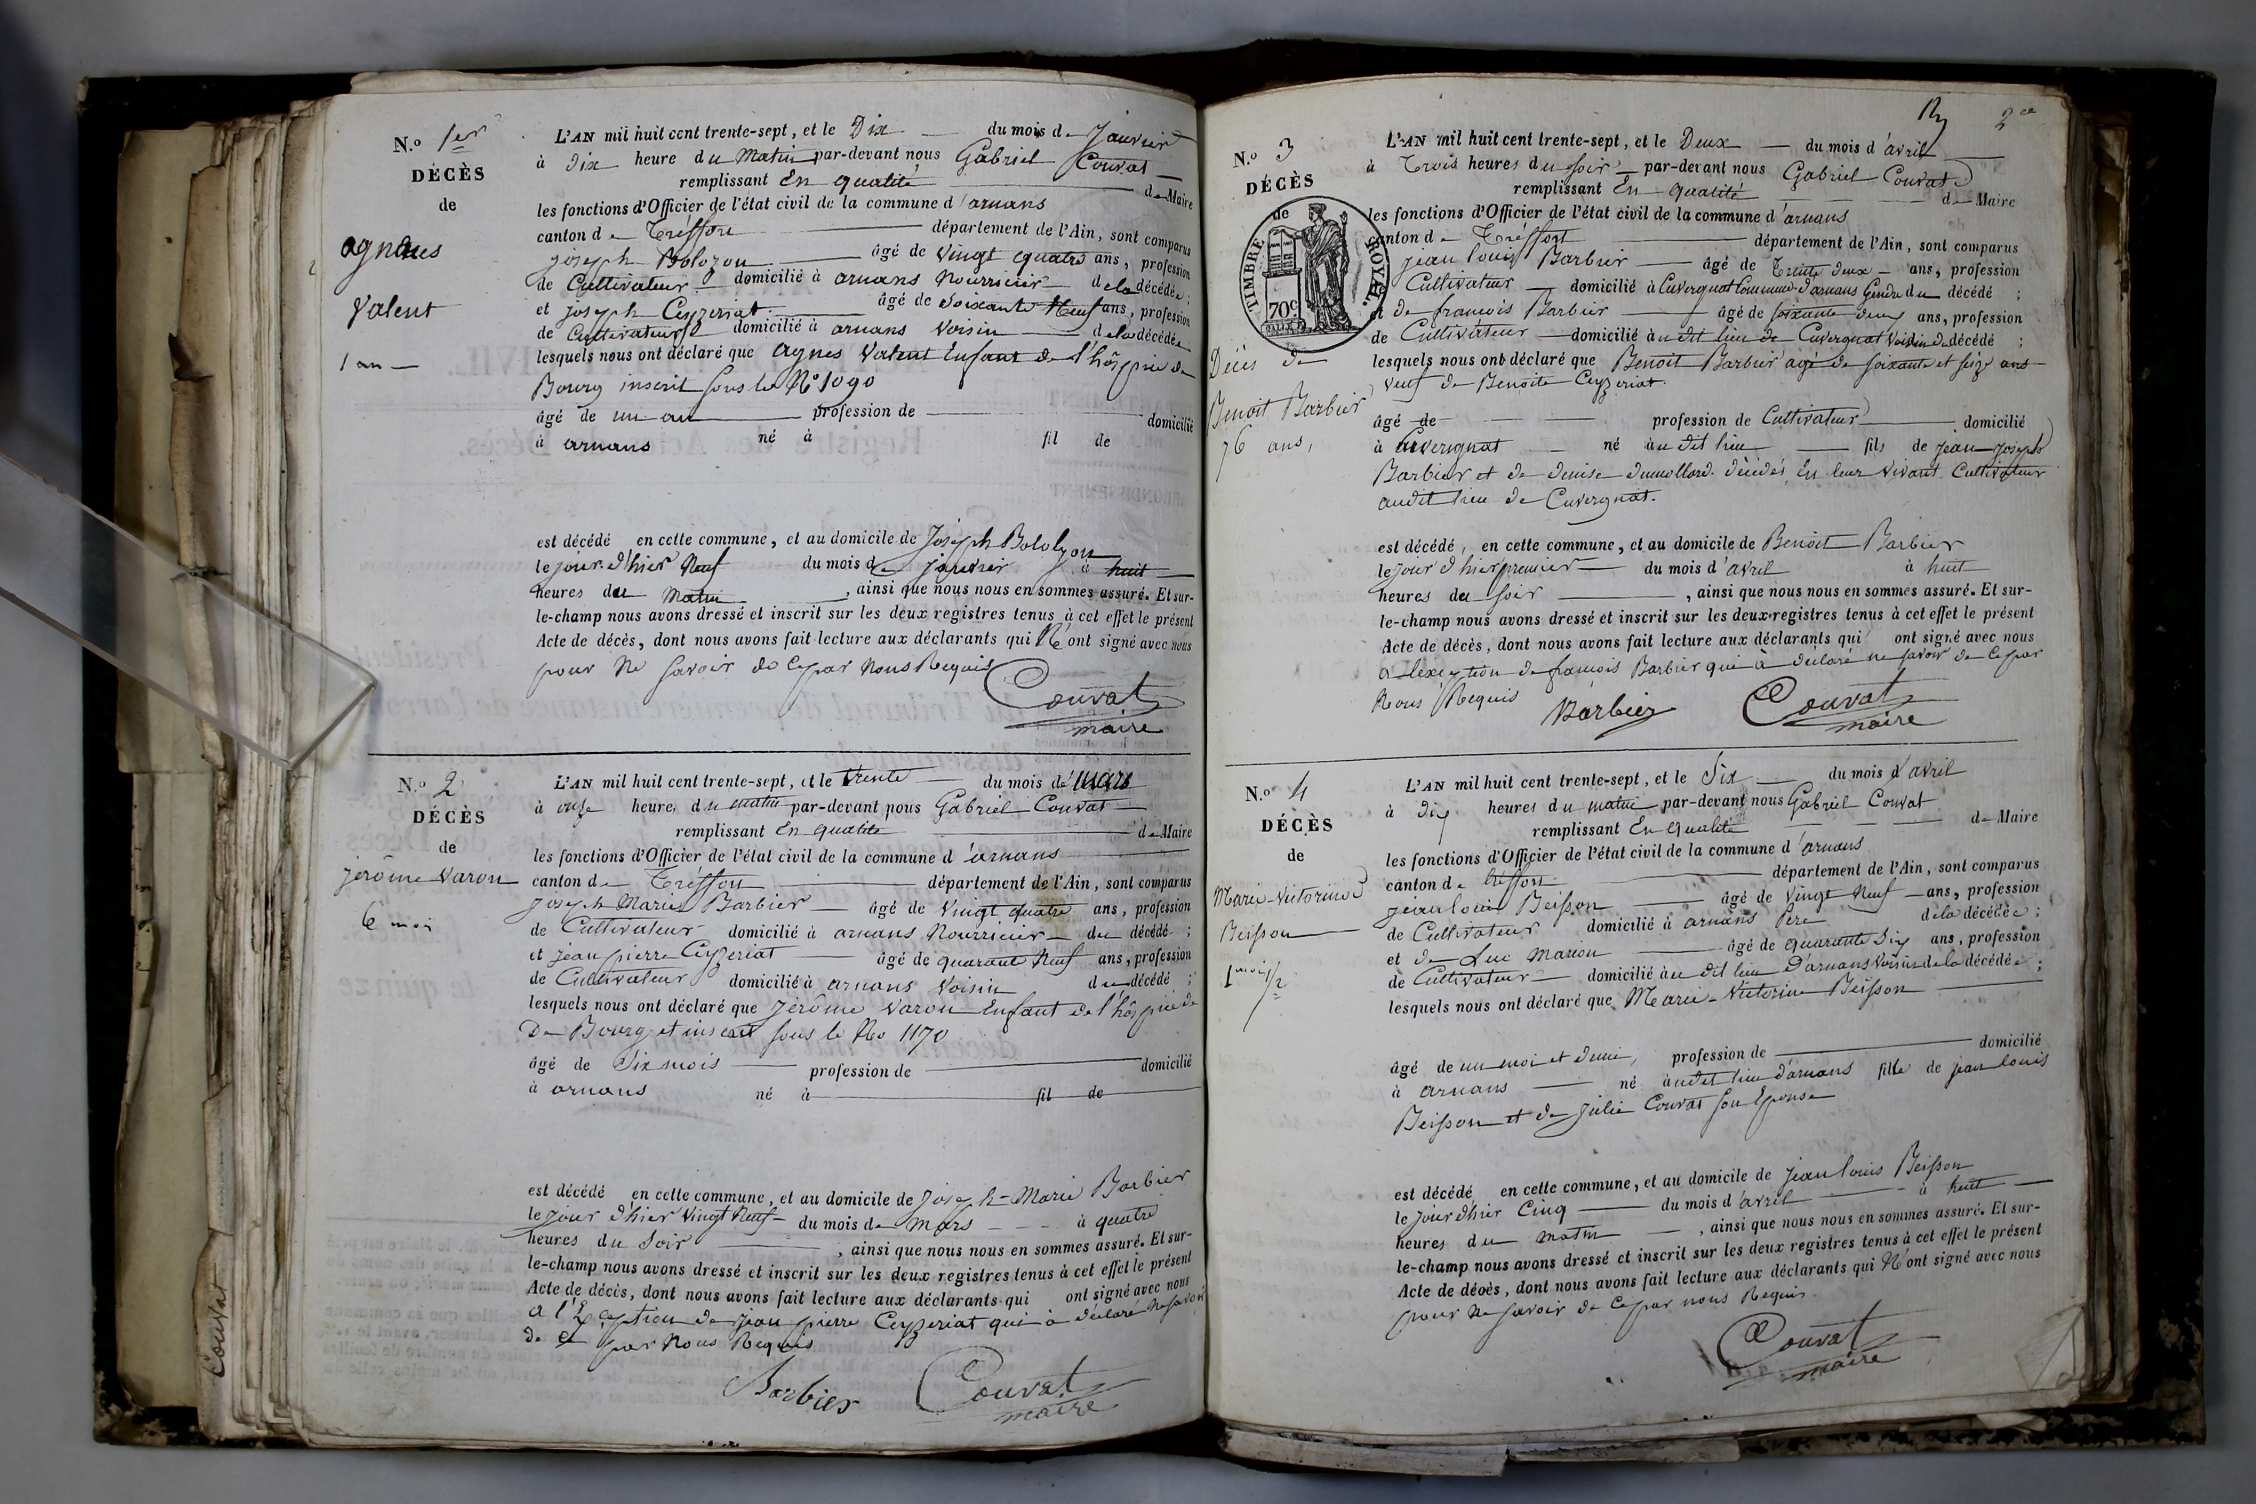 N.º 1er
DÉCÈS
de
agnaus
Valent
1 an
L'AN mil huit cent trente-sept, et le Dix du mois de Janvier
à dix heure du Matin par-devant nous Gabriel Couvat
remplissant En qualité de Maire
les fonctions d'Officier de l'état civil de la commune d'arnans
canton de Tréffort département de l'Ain, sont comparus
joseph Bolozon âgé de vingt quatre ans, profession
de Cultivateur domicilié à arnans Nourricier de la décédée;
et joseph Ceyzeriat âgé de soixante Neuf ans, profession
de Cultivateur domicilié à arnans voisin de la décédée
lesquels nous ont déclaré que agnes Valent Enfant de l'hôspice de
Bourg inscrit sous le Nº 1090
âgé de un an profession de domicilié
à arnans né à fil de
est décédé en cette commune, et au domicile de Joseph Bolozon
le jour d'hier Neuf du mois de janvier à huit
heures du Matin, ainsi que nous nous en sommes assuré. Et sur-
le-champ nous avons dressé et inscrit sur les deux registres tenus à cet effet le présent
Acte de décès, dont nous avons fait lecture aux déclarants qui N'ont signé avec nous
pour Ne savoir de Ce par Nous Requis
Couvat
maire
N.º 2
DÉCÈS
de
jérôme Varon
6 moi
L'AN mil huit cent trente-sept, et le trente du mois de mars
à onze heures du matin par-devant nous Gabriel Couvat
remplissant En qualité de Maire
les fonctions d'Officier de l'état civil de la commune d'arnans
canton de Tréffort département de l'Ain, sont comparus
joseph Marie Barbier âgé de Vingt quatre ans, profession
de Cultivateur domicilié à arnans Nourricier du décédé;
et jean pierre Ceyzeriat âgé de quarante Neuf ans, profession
de Cultivateur domicilié à arnans voisin du décédé;
lesquels nous ont déclaré que jérôme Varon Enfant de l'hôspice de
De Bourg et inscrit sous le No 1170
âgé de Six mois profession de domicilié
à arnans né à fil de
est décédé en cette commune, et au domicile de joseph-Marie Barbier
le jour d'hier vingt Neuf du mois de Mars à quatre
heures du Soir, ainsi que nous nous en sommes assuré. Et sur-
le-champ nous avons dressé et inscrit sur les deux registres tenus à cet effet le présent
Acte de décès, dont nous avons fait lecture aux déclarants qui ont signé avec nous
a l'Exception de jean pierre Ceyzeriat qui à déclaré ne savoir
de Ce par Nous Requis
Barbier Couvat
maire
Couvat
2
N.º 3
DÉCÈS
de
TIMBRE ROYAL
70c
Décès de
Benoit Barbier
76 ans,
L'AN mil huit cent trente-sept, et le Deux du mois d'avril
à Trois heures du soir par-devant nous Gabriel Couvat
remplissant En qualité de Maire
les fonctions d'Officier de l'état civil de la commune d'arnans
canton de Tréffort département de l'Ain, sont comparus
jean louis Barbier âgé de Trente deux ans, profession
Cultivateur domicilié à Cuvergnat Commune d'arnans Gendre du décédé;
et de francois Barbier âgé de soixante deux ans, profession
de Cultivateur domicilié à u dit lieu de Cuvergnat Voisin du décédé;
lesquels nous ont déclaré que Benoit Barbier agé de soixante et seize ans
veuf de Benoite Ceyzeriat.
âgé de profession de Cultivateur domicilié
à Cuvergnat né à u dit lieu fils de jean joseph
Barbier et de denise dumollard décédés En leur vivant Cultivateur
audit lieu de Cuvergnat.
est décédé, en cette commune, et au domicile de Benoit Barbier
le jour d'hier premier du mois d'avril à huit
heures du soir, ainsi que nous nous en sommes assuré. Et sur-
le-champ nous avons dressé et inscrit sur les deux registres tenus à cet effet le présent
Acte de décès, dont nous avons fait lecture aux déclarants qui ont signé avec nous
a lexception de francois Barbier qui à déclaré ne savoir de Ce par
Nous Requis
Barbier Couvat
maire
N.º 4
DÉCÈS
de
Marie-Victorine
Beisson
1 moi 1/2
L'AN mil huit cent trente-sept, et le Six du mois d'avril
à dix heures du matin par-devant nous Gabriel Couvat
remplissant En Qualité de Maire
les fonctions d'Officier de l'état civil de la commune d'arnans
canton de tréffort département de l'Ain, sont comparus
jean louis Beisson âgé de vingt Neuf ans, profession
de Cultivateur domicilié à arnans Père de la décédée;
et de Luc Marion âgé de quarante Six ans, profession
de Cultivateur domicilié à u dit lieu D'arnans Voisin de la décédée;
lesquels nous ont déclaré que Marie-Victorine Beisson
âgé de un moi et demi, profession de domicilié
à arnans né à udit lieu d'arnans fille de jean louis
Beisson et de julie Couvat son Epouse
est décédé en cette commune, et au domicile de jean louis Beisson
le jour d'hier Cinq du mois d'avril à huit
heures du matin, ainsi que nous nous en sommes assuré. Et sur-
le-champ nous avons dressé et inscrit sur les deux registres tenus à cet effet le présent
Acte de décès, dont nous avons fait lecture aux déclarants qui N'ont signé avec nous
pour Ne savoir de Ce par nous Requis
Couvat
maire